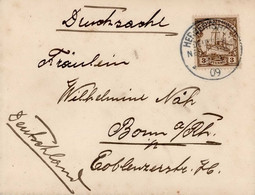 Drucksache
Fräulein
Wilhelmine Näh
Bonn a/Rh.
Coblenzerstr.
Deutschland
09
3 3